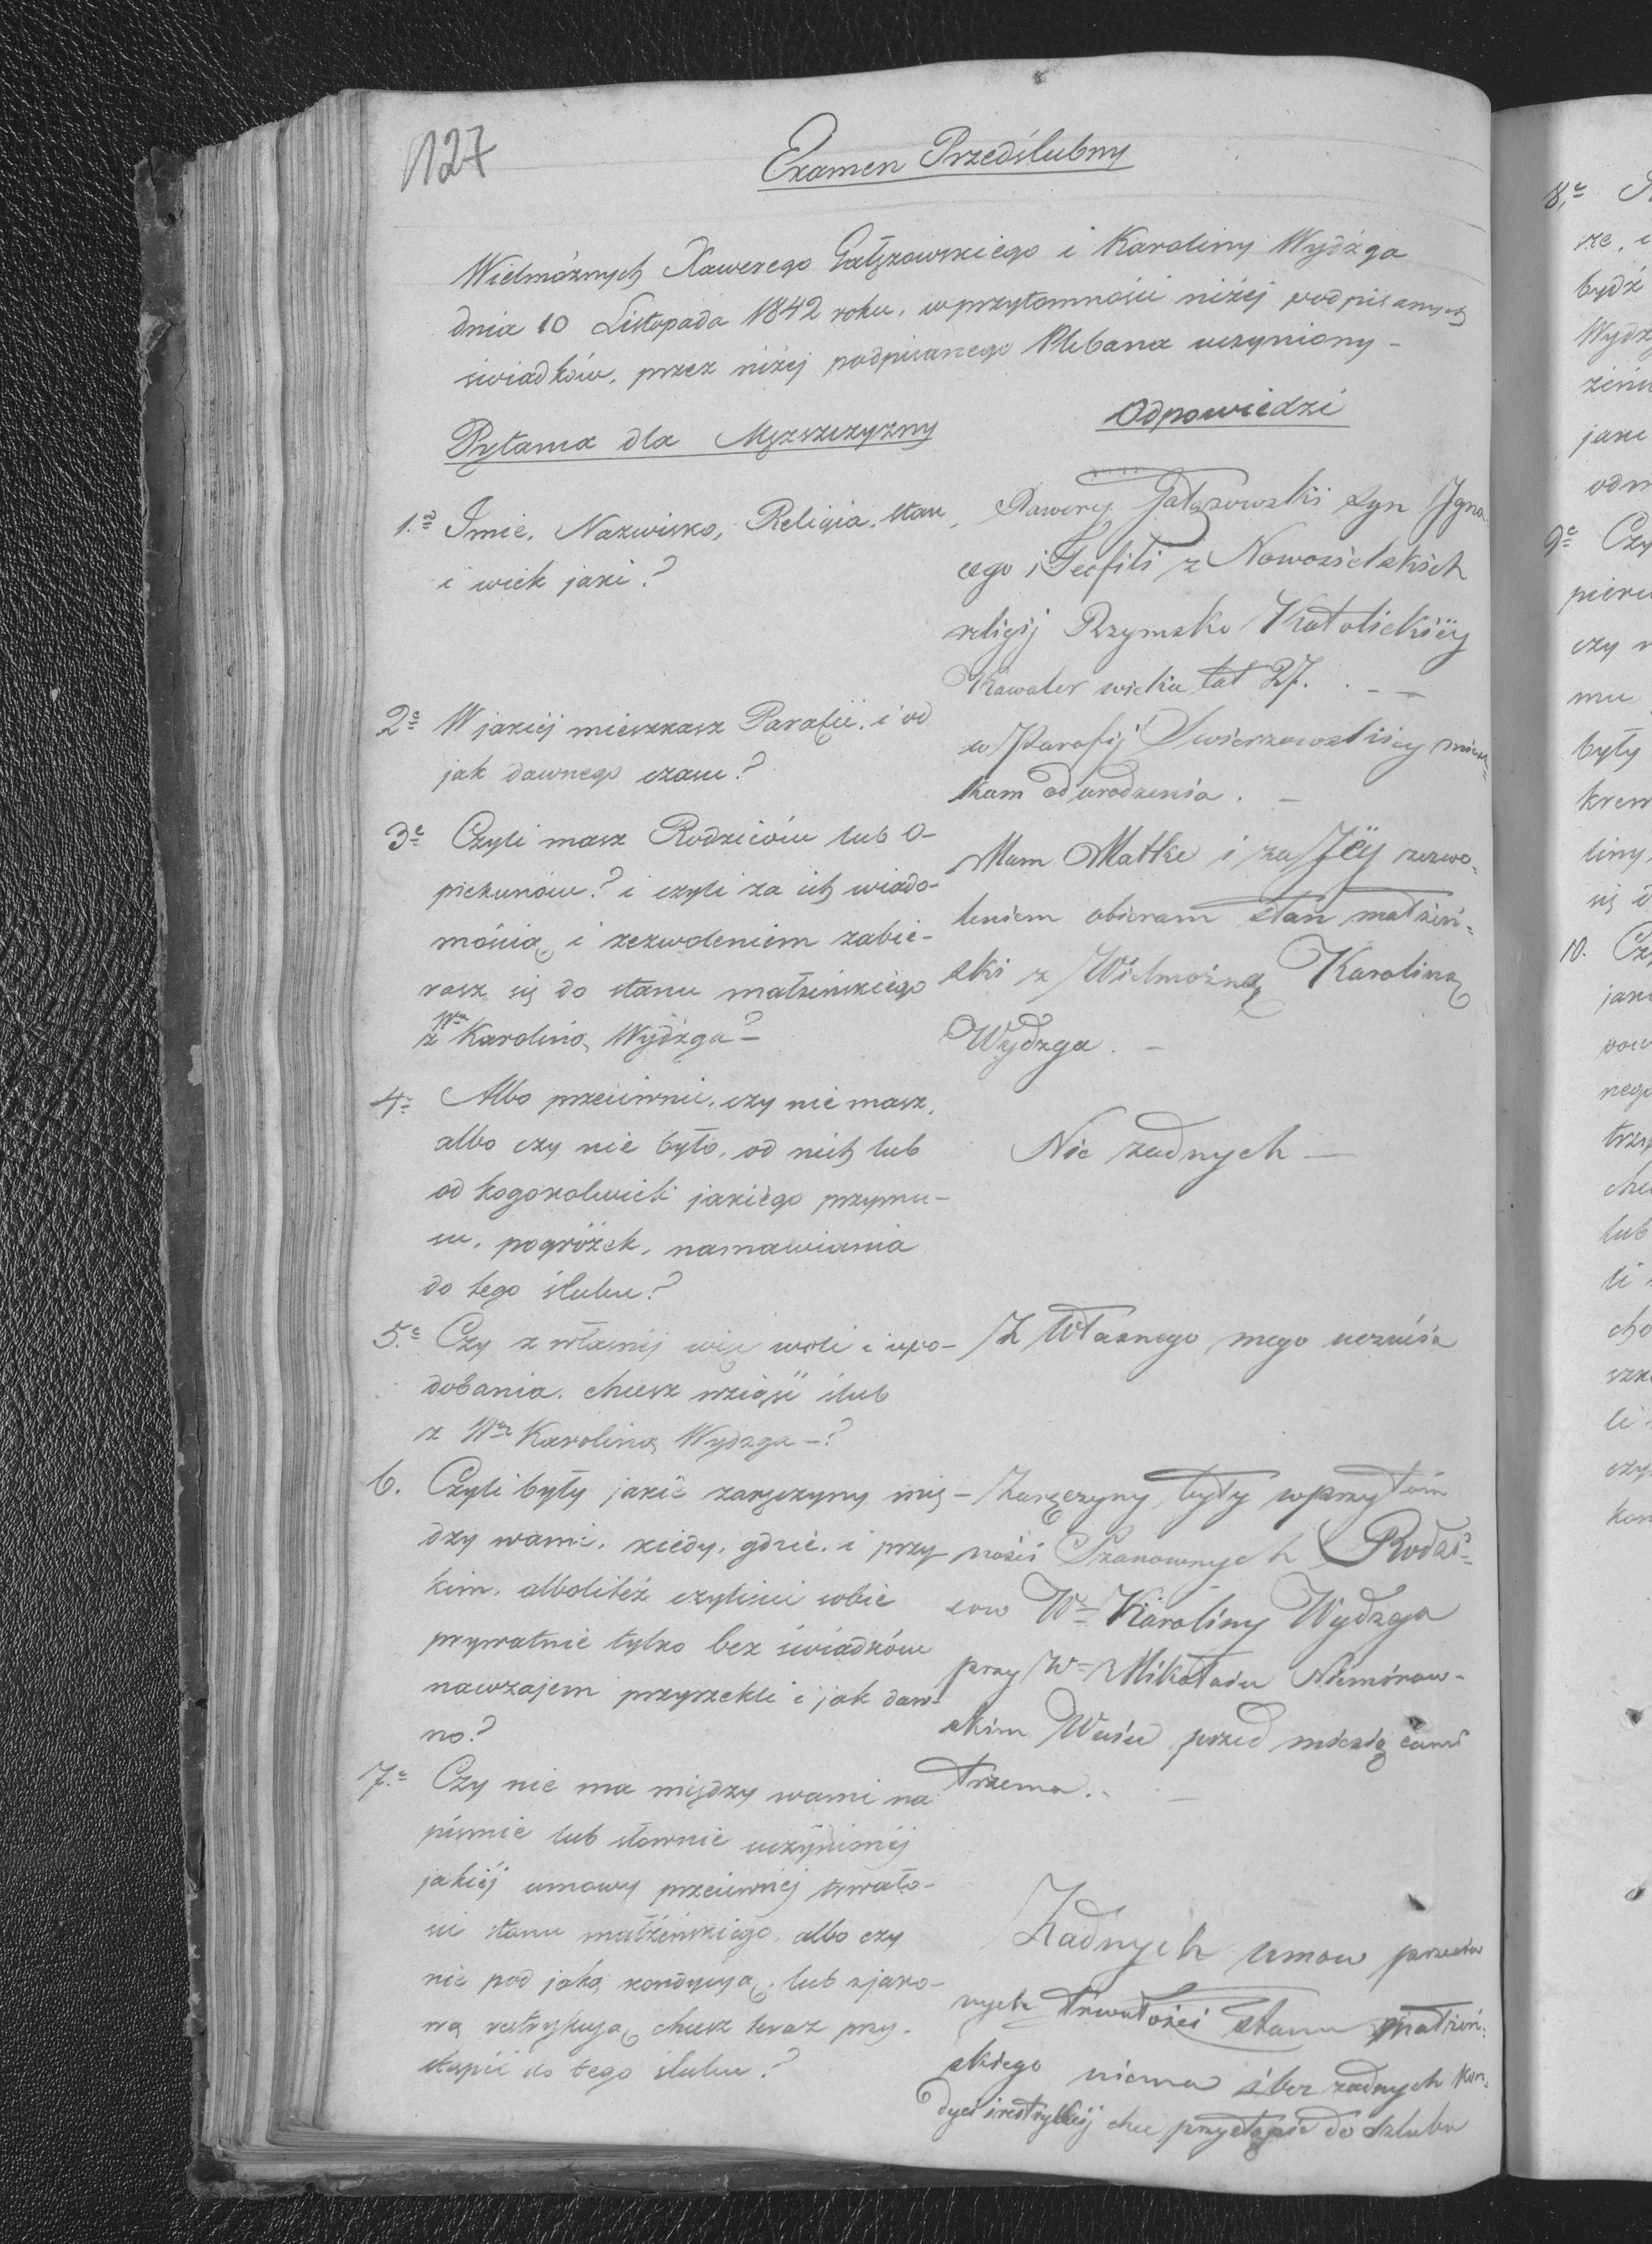 127
Examen Przedślubny
Wielmożnych Xawerego Gałęzowskiego i Karoliny Wydżga
dnia 10 Listopada 1842 roku, w przytomności niżéj podpisanych
świadków, przez niżéj podpisanego Plebana uczyniony -
Pytania dla Męszczyzny
Odpowiedzi
1.o Imie, Nazwisko, Religia, stan
i wiek jaki?
Xawery Gałęzowski syn Igna
cego i Teofili z Nowosielskich
religij Rzymsko Katolickiéy
Kawaler wieku lat 27. - -
2e W jakiéj mieszkasz Parafii, i od
jak dawnego czasu?
w Parafij Swierzowskiéy miesz=
kam od urodzenia. -
3e Czyli masz Rodziców lub O-
piekunów? i czyli za ich wiado-
mością i zezwoleniem zabie-
rasz się do stanu małżeńskiego
z Wą Karoliną Wydżga -
Mam Matke i za Jéy zezwo=
leniem obieram stan małżeń=
ski z Wielmożną Karoliną
Wydzga. -
4e Albo przeciwnie, czy nie masz,
albo czy nie było, od nich lub
od kogokolwiek jakiego przymu-
su, pogróżek, namawiania
do tego ślubu?
Nie zadnych -
5.e Czy z własnéj więc woli i upo-
dobania, chcesz wziąść ślub
z Wą Karoliną Wydzga -?
Z Własnego mego uczucia
6. Czyli były jakie zaręczyny mię-
dzy wami, kiedy, gdzie, i przy
kim, albolitéż czyliści sobie
prywatnie tylko bez świadków
nawzajem przyrzekli i jak daw-
no?
Zaręczyny były w przytom
nosci Szanownych Rodzi=
cow Wy Karoliny Wydzga
przy Wm Mikołaiu
skim Wuiu przed miesiącami
trzema. -
7.e Czy nie ma między wami na
piśmie lub słownie uczynionéj
jakiéj umowy przeciwnéj trwało-
ści stanu małżeńskiego, albo czy
nie pod jaką kondycyą, lub z jako-
wą restrykcyą, chcesz teraz przy-
stąpić do tego ślubu?
Zadnych umow przeciw
nych trwałości stanu małżeń=
skiego niema i bez zadnych kon=
dyci i restrykcij chcę przystąpić do szlubu